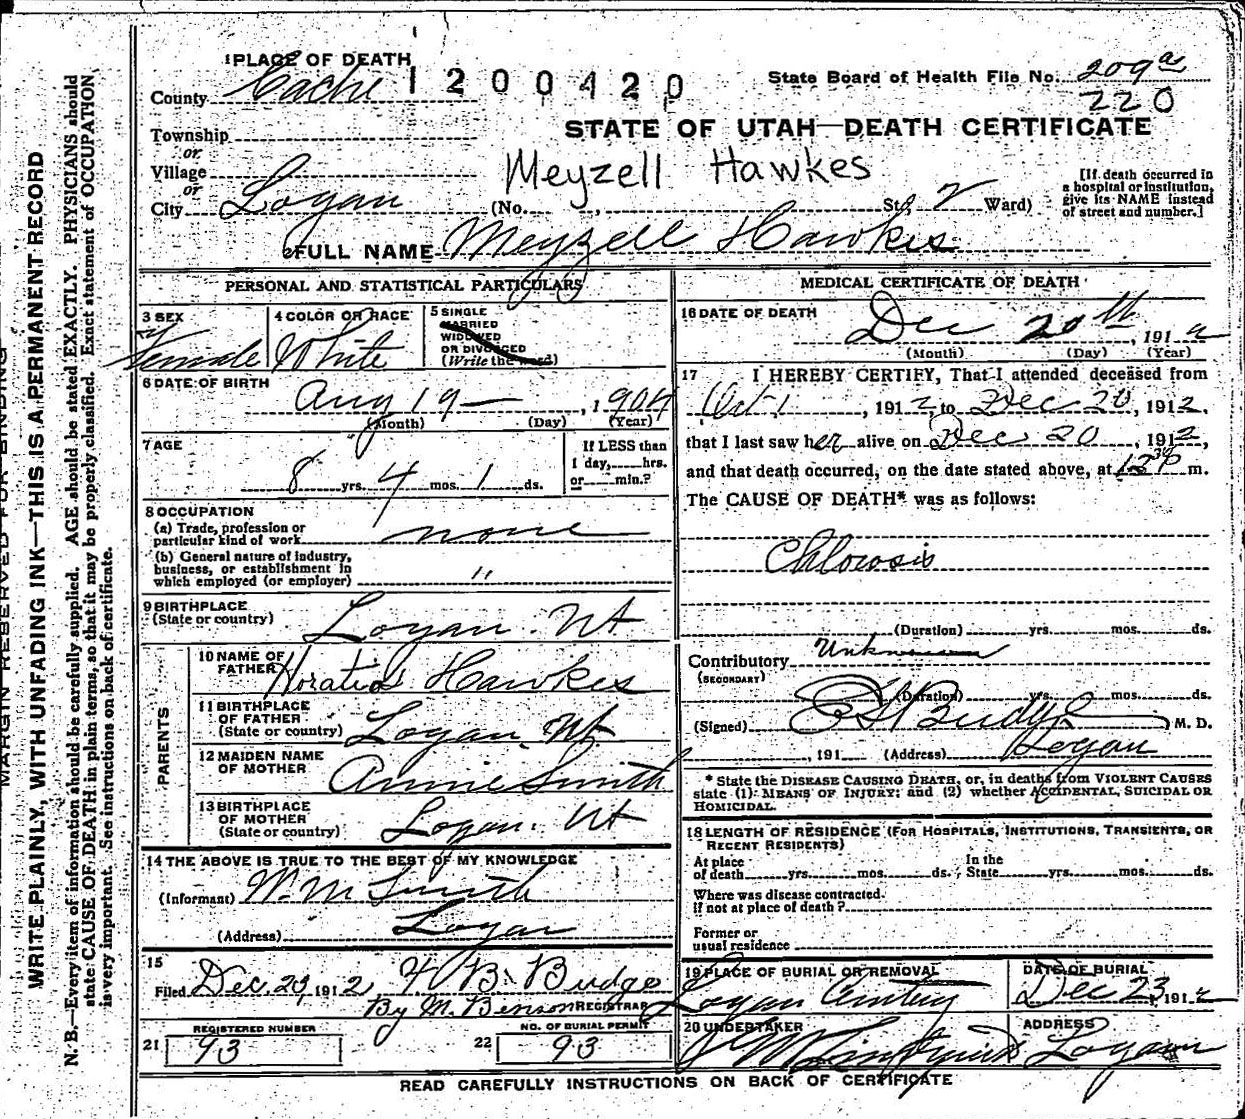 1 PLACE OF DEATH
County Cache 1200420
State Board of Health File No. 209a
220
Township
or
STATE OF UTAH—DEATH CERTIFICATE
Village
or
Meyzell Hawkes
City Logan (No. , St. 2 Ward)
[If death occurred in a hospital or institution, give its NAME instead of street and number.]
2 FULL NAME Meyzell Hawkes
PERSONAL AND STATISTICAL PARTICULARS
3 SEX
Female
4 COLOR OR RACE
White
5 SINGLE
MARRIED
WIDOWED
OR DIVORCED
(Write the word)
6 DATE OF BIRTH
Aug 19 — , 1904
(Month) (Day) (Year)
7 AGE
8 yrs. 4 mos. 1 ds.
If LESS than
1 day, hrs.
or min.?
8 OCCUPATION
(a) Trade, profession or
particular kind of work none
(b) General nature of industry,
business, or establishment in
which employed (or employer) "
9 BIRTHPLACE
(State or country) Logan. Ut
PARENTS
10 NAME OF
FATHER Horatio Hawkes
11 BIRTHPLACE
OF FATHER
(State or country) Logan. Ut
12 MAIDEN NAME
OF MOTHER Annie Smith
13 BIRTHPLACE
OF MOTHER
(State or country) Logan. Ut
14 THE ABOVE IS TRUE TO THE BEST OF MY KNOWLEDGE
(Informant) W. M Smith
(Address) Logan
15
Filed Dec. 20, 1912 B. Budge
By M. Benson REGISTRAR
REGISTERED NUMBER
21 93
NO. OF BURIAL PERMIT
22 93
MEDICAL CERTIFICATE OF DEATH
16 DATE OF DEATH
Dec 20th , 1912
(Month) (Day) (Year)
17 I HEREBY CERTIFY, That I attended deceased from
Oct 1 , 1912, to Dec 20, 1912,
that I last saw her alive on Dec 20 , 1912,
and that death occurred, on the date stated above, at m.
The CAUSE OF DEATH* was as follows:
Chlorosis
(Duration) yrs. mos. ds.
Contributory Unknown
(SECONDARY)
(Duration) yrs. mos. ds.
(Signed) Budge M. D.
, 191 (Address) Logan
* State the DISEASE CAUSING DEATH, or, in deaths from VIOLENT CAUSES
state (1) MEANS OF INJURY; and (2) whether ACCIDENTAL, SUICIDAL OR
HOMICIDAL.
18 LENGTH OF RESIDENCE (FOR HOSPITALS, INSTITUTIONS, TRANSIENTS, OR
RECENT RESIDENTS)
At place
of death yrs. mos. ds., In the
State yrs. mos. ds.
Where was disease contracted.
if not at place of death?
Former or
usual residence
19 PLACE OF BURIAL OR REMOVAL
Logan
DATE OF BURIAL
Dec 23, 1912
20 UNDERTAKER
ADDRESS
Logan
READ CAREFULLY INSTRUCTIONS ON BACK OF CERTIFICATE
MARGIN RESERVED FOR BINDING
WRITE PLAINLY, WITH UNFADING INK—THIS IS A PERMANENT RECORD
N. B.—Every item of information should be carefully supplied. AGE should be stated EXACTLY. PHYSICIANS should
state CAUSE OF DEATH in plain terms, so that it may be properly classified. Exact statement of OCCUPATION
is very important. See instructions on back of certificate.